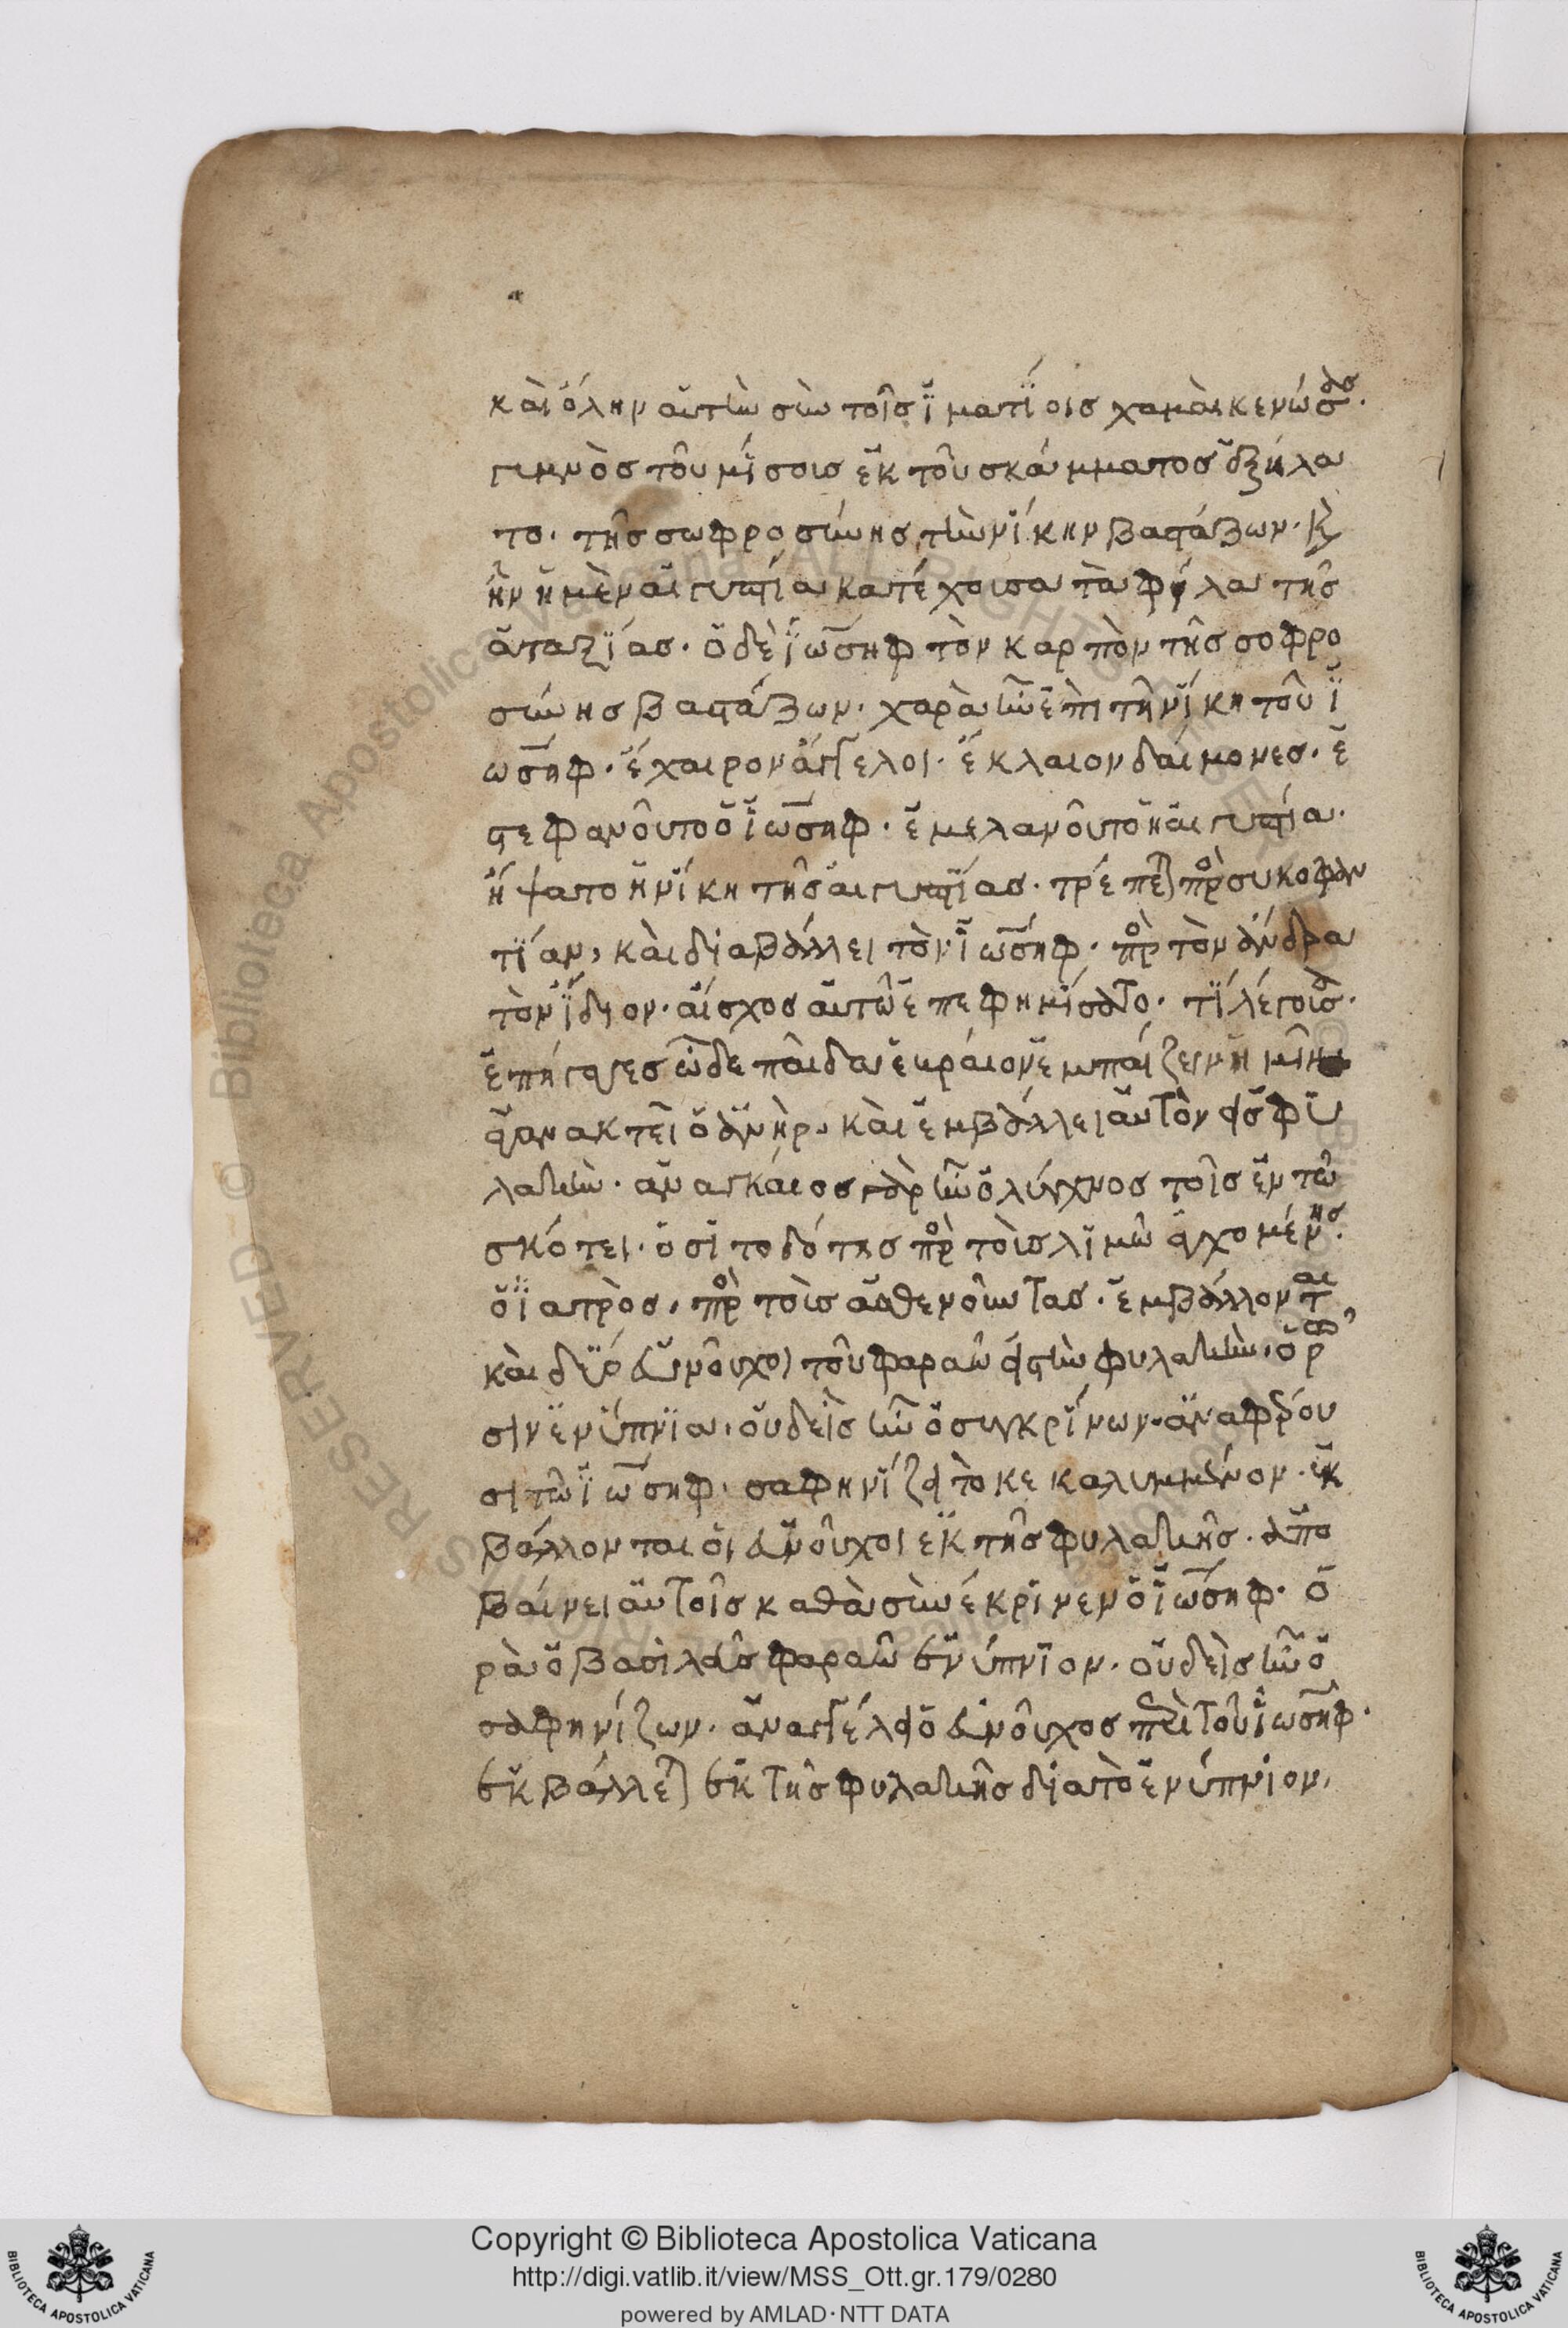 κὰι ὅλην αὐτὴν σὺν τοῖσ ϊματίοισ χαμὰι κενώσασ.
γυμνὸσ τοῦ μίσουσ ἐκ τοῦ σκάμματοσ ἐξήλα
το. τῆσ σωφροσύνησ τὴν νίκην βαστάζων. κ
ἦν ἡ μὲν αἰγυπτία κατέχουσα τὰ φύλα τῆσ
ἀταξίασ. ὁ δὲ ϊωσὴφ τὸν καρπὸν τῆσ σοφρο
σύνησ βαστάζων. χαρὰ ἦν ἐπὶ τῆ νίκη τοῦ ϊ
ωσὴφ. ἔχαιρον ἄγγελοι. ἔκλαιον δαίμονεσ. ἐ
στεφανοῦτο ὁ ϊωσὴφ. ἐμελανοῦτο ἡ αἰγυπτία.
ἥψατο ἡ νίκη τῆσ αἰγυπτίασ. τρέπεται πρὸσ συκοφαν
τίαν, κὰι διαβάλλει τὸν ϊωσὴφ. πρὸσ τὸν ἄνδρα
τὸν ϊδιον. αἴσχοσ αὐτῶ ἐπεφημίσατο. τί λέγουσα.
ἐπήγαγεσ ὧδε παῖδα ἑβράιον ἐμπάιζειν ἡμῖν
ἀγανακτεῖ ὁ ἀνὴρ, κὰι ἐμβάλλει αὐτὸν εἰσ φυ
λακὴν. ἀναγκάιοσ γὰρ ἦν ὁ λύχνοσ τοῖσ ἐν τῶ
σκότει. ὁ σιτοδότησ πρὸσ τοὺσ λιμῶ ἀγχομένουσ.
ὁ ϊατρὸσ, πρὸσ τοὺσ ἀσθενοῦντασ. ἐμβάλλονται
κὰι δύο εὐνοῦχοι τοῦ φαραὼ εἰσ τὴν φυλακὴν, ὁρῶ
σιν ἐνύπνϊα, οὐδεὶσ ἦν ὁ συγκρίνων. ἀναφέρου
σι τῶ ϊωσὴφ. σαφηνίζει τὸ κεκαλυμμένον. ἐκ
βάλλονται ὁι εὐνοῦχοι ἐκ τῆσ φυλακῆσ. ἀπο
βαίνει αὐτοῖσ καθὰ συνέκρινεν ὁ ϊωσὴφ. ὁ
ρὰ ὁ βασιλεὺσ φαραὼ ἐνύπνϊον. οὐδεὶσ ἦν ὁ
σαφηνίζων. ἀναγγέλει ὁ εὐνοῦχοσ περὶ τοῦ ϊωσὴφ.
ἐκβάλλεται ἐκ τῆσ φυλακῆσ διὰ τὸ ἐνύπνιον,
Copyright © Biblioteca Apostolica Vaticana
http://digi.vatlib.it/view/MSS_Ott.gr.179/0280
powered by AMLAD·NTT DATA